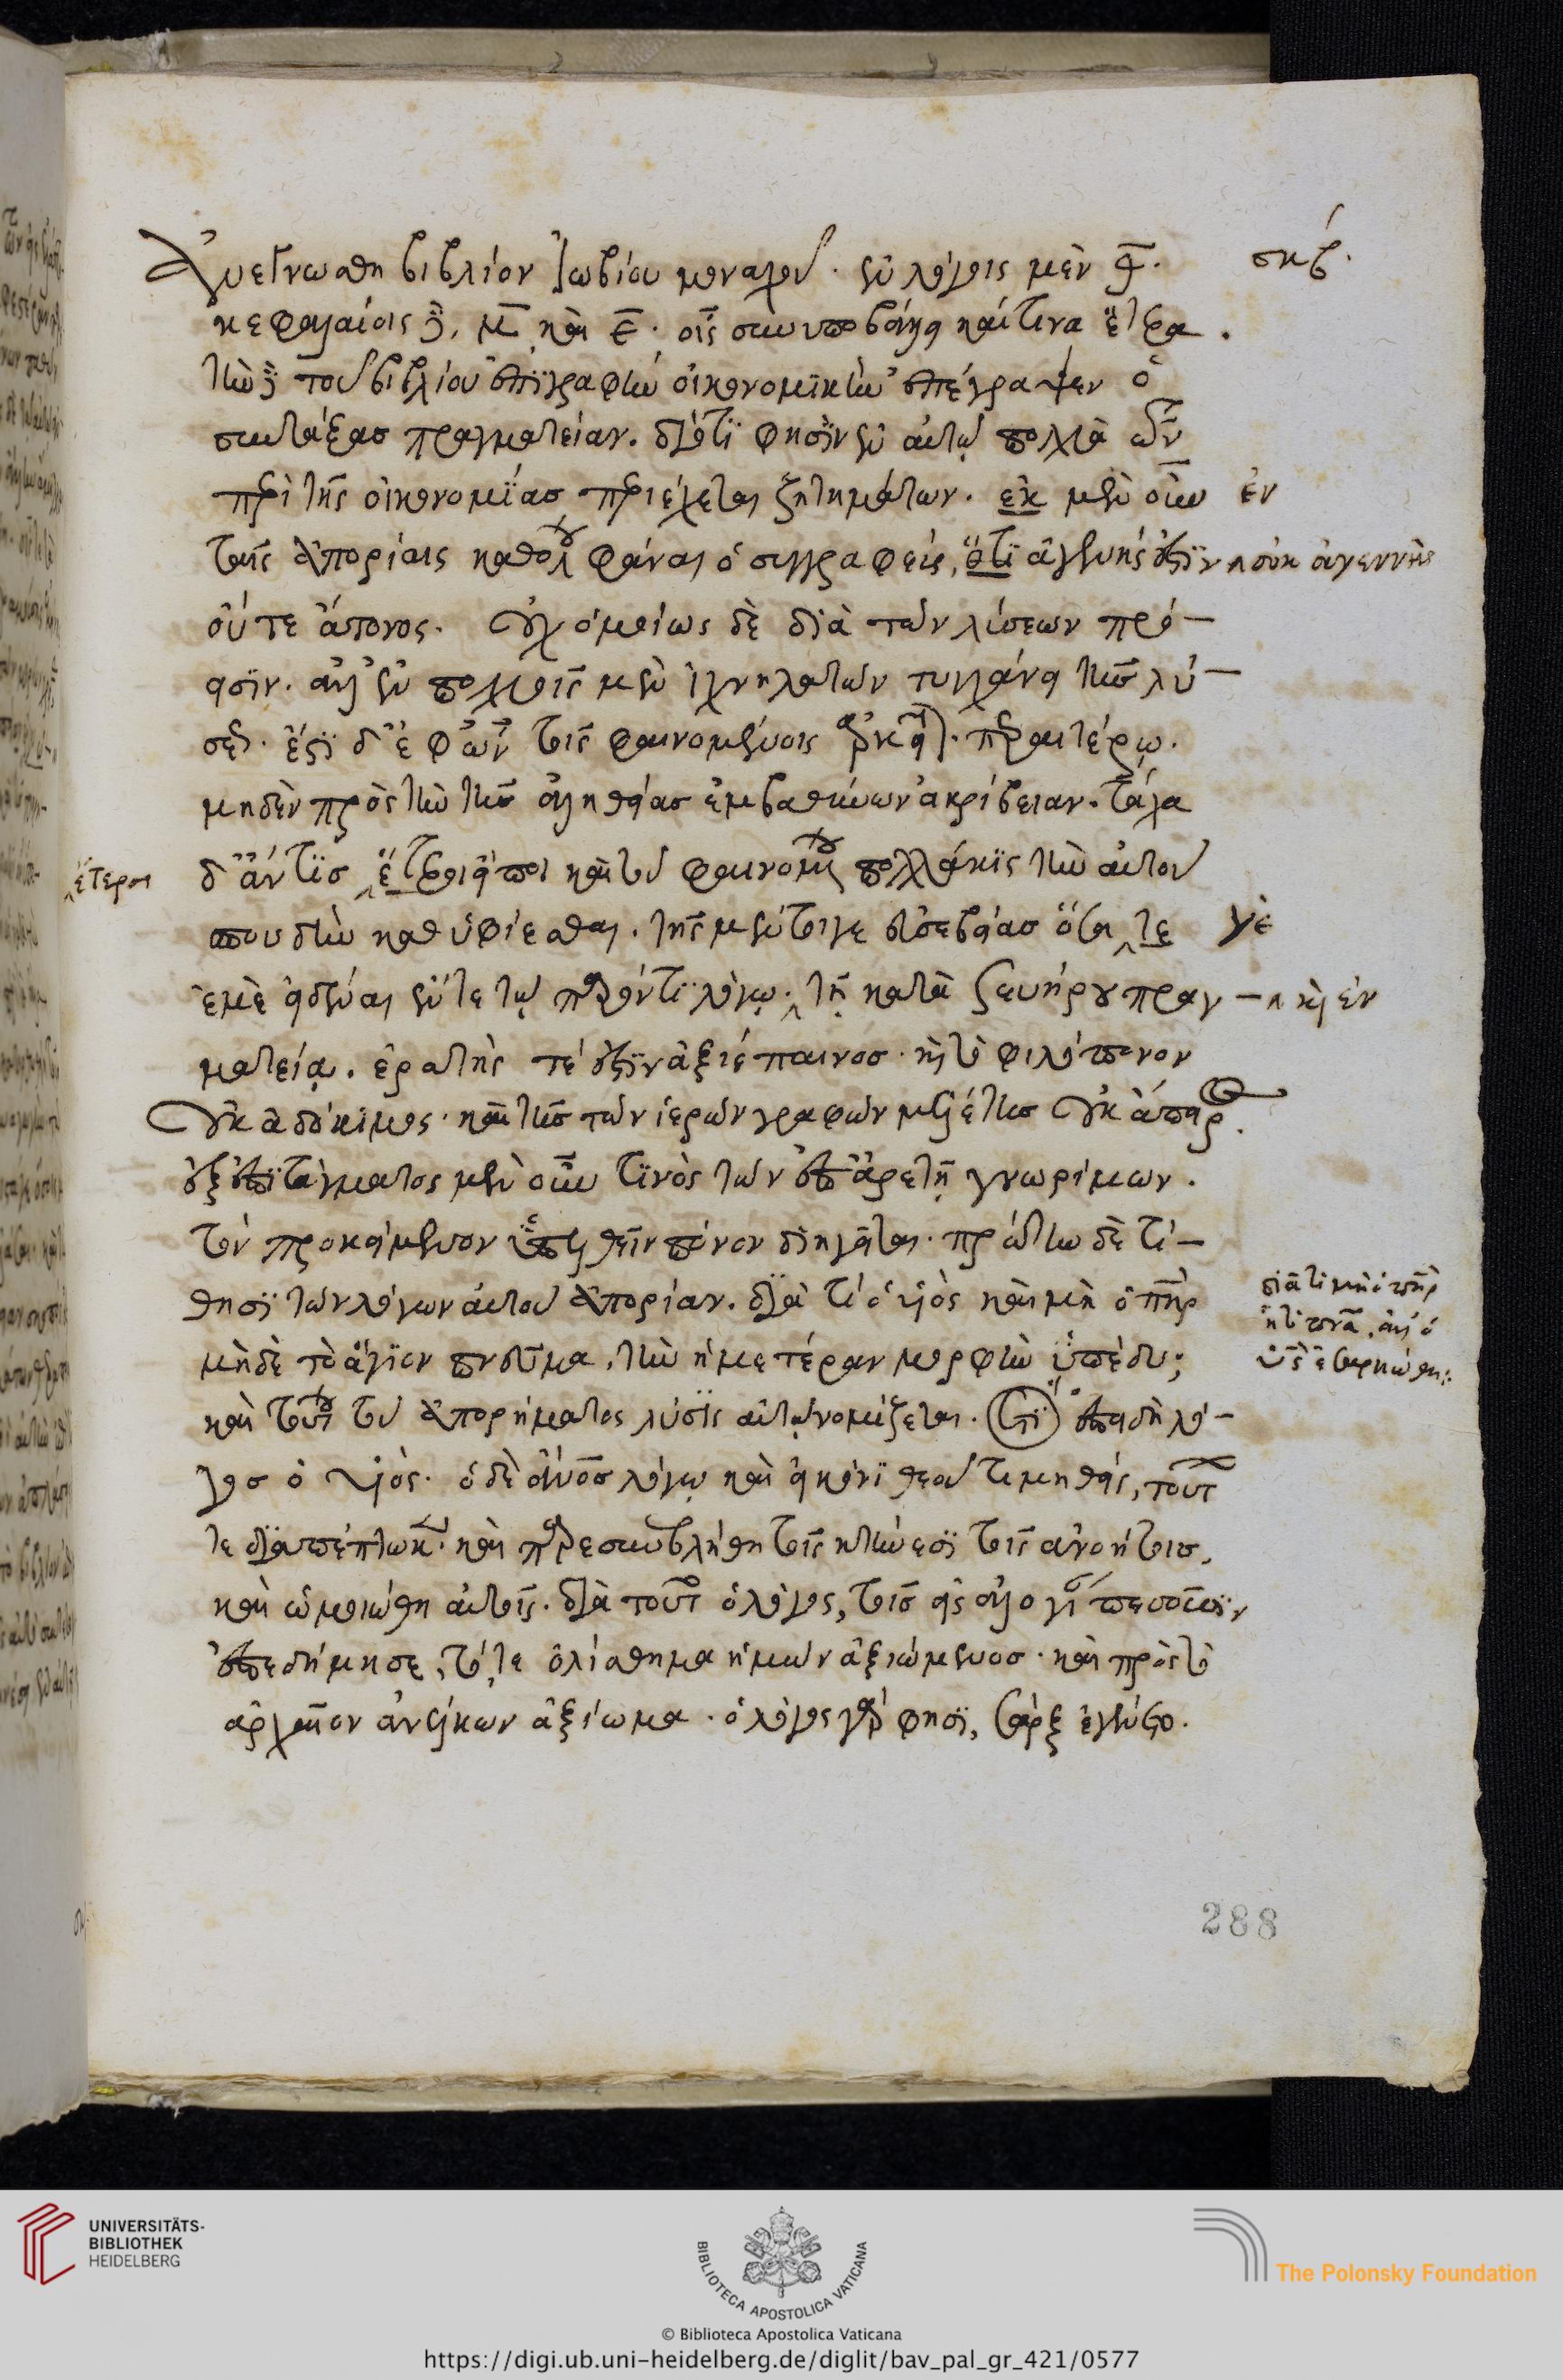 Ἀνεγνώσθη βιβλίον Ἰωβίου μοναχοῦ· ἐν λόγοις μὲν θ̅. σκβ́.
κεφαλαίοις δὲ, μ̅ καὶ ε̅· οἷς συνυποβάλλει καί τινα ἕτερα.
τὴν δὲ τοῦ βιβλίου ἐπιγραφὴν οἰκονομικὴν ἐπέγραψεν ὁ
συντάξας πραγματείαν. διότι φησὶν ἐν αὐτῷ πολλὰ τῶν
περὶ τῆς οἰκονομίας περιέχεται ζητημάτων. ἐκ μὲν οὖν ἐν
ταῖς ἀπορίαις καθόλου φάναι ὁ συγγραφεὺς, ὅτι ἀγενής ἐστιν οὐκ ἀγεννὴς
οὔτε ἄπονος. οὐχ ὁμοίως δὲ διὰ τῶν λύσεων πρό–
εισιν. ἀλλ' ἐν πολλοῖς μὲν ἰχνηλατῶν τυγχάνει τῆς λύ–
σεως. ἔστι δ' ἐφ' ὧν τοῖς φαινομένοις ἀρκεῖται. περαιτέρω.
μηδὲν πρὸς τὴν τῆς ἀληθείας ἐμβαθύνων ἀκρίβειαν. τάχα
ἕτεροι δ' ἄν τις ἕτερα εἴποι καὶ τοῦ φαινομένου πολλάκις τὴν αὐτοῦ
σπουδὴν καθυφίεσθαι. τῆς μέντοι γε εὐσεβείας ὅσα τε γὲ
ἐμὲ εἰδέναι ἔν τε τῷ παρόντι λόγῳ. τῇ κατὰ Σευήρου πραγ– καὶ ἐν
ματείᾳ. ἐραστής τέ ἐστιν ἀξιέπαινος. καὶ τὸ φιλόπονον
οὐκ ἀδόκιμος. καὶ τῆς τῶν ἱερῶν γραφῶν μελέτης οὐκ ἄπειρος.
ἐξ ἐπιτάγματος μὲν οὖν τινὸς τῶν ἐπ' ἀρετῇ γνωρίμων.
τὸν προκείμενον ὑπελθεῖν πόνον διηγεῖται. πρώτην δὲ τί–
θησι τῶν λόγων αὐτοῦ ἀπορίαν. διὰ τί ὁ υἱὸς καὶ μὴ ὁ πηρ
μηδὲ τὸ ἅγιον πνεῦμα, τὴν ἡμετέραν μορφὴν ὑπέδυ;
διατί μὴ ὁ πηρ
ἢ τὸ πνα, ἀλλ' ὁ
υς ἐσαρκώθη:
καὶ τούτου τοῦ ἀπορήματος λύσις αὐτῷ νομίζεται. ὅτι ἐπειδὴ λό–
γος ὁ υἱός. ὁ δὲ ἄνος λόγῳ καὶ εἰκόνι θεοῦ τιμηθείς, τούτου
τε διαπέπτωκε. καὶ παρεσυνεβλήθη τοῖς κτήνεσι τοῖς ἀνοήτοις,
καὶ ὡμοιώθη αὐτοῖς. διὰ τοῦτο ὁ λόγος, τοῖς εἰς ἀλογίαν πεσοῦσιν
ἐπεδήμησε, τό τε ὀλίσθημα ἡμῶν ἀξιώμενος. καὶ πρὸς τὸ
ἀρχαῖον ἀνέλκων ἀξίωμα. ὁ λόγος γάρ φησι, σὰρξ ἐγένετο.
288
UNIVERSITÄTS-
BIBLIOTHEK
HEIDELBERG
BIBLIOTECA APOSTOLICA VATICANA
The Polonsky Foundation
© Biblioteca Apostolica Vaticana
https://digi.ub.uni-heidelberg.de/diglit/bav_pal_gr_421/0577